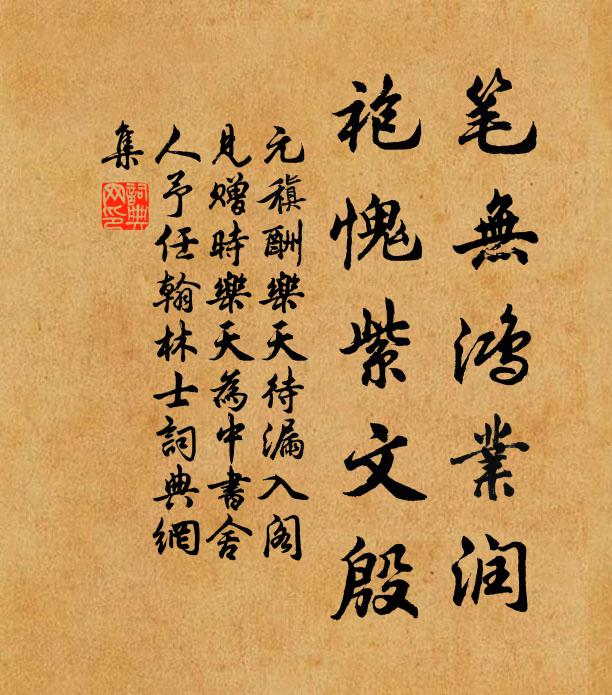 笔無鴻業润
袍愧紫文殷
元稹酬樂天待漏入阁
見贈時樂天為中書舍
人予任翰林士詞典網
集
詞典
网印